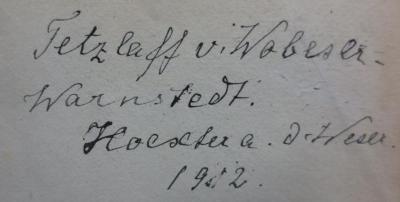 Tetzlaff v. Wobeser-
Warnstedt.
Hoexter a. d. Weser.
1912.